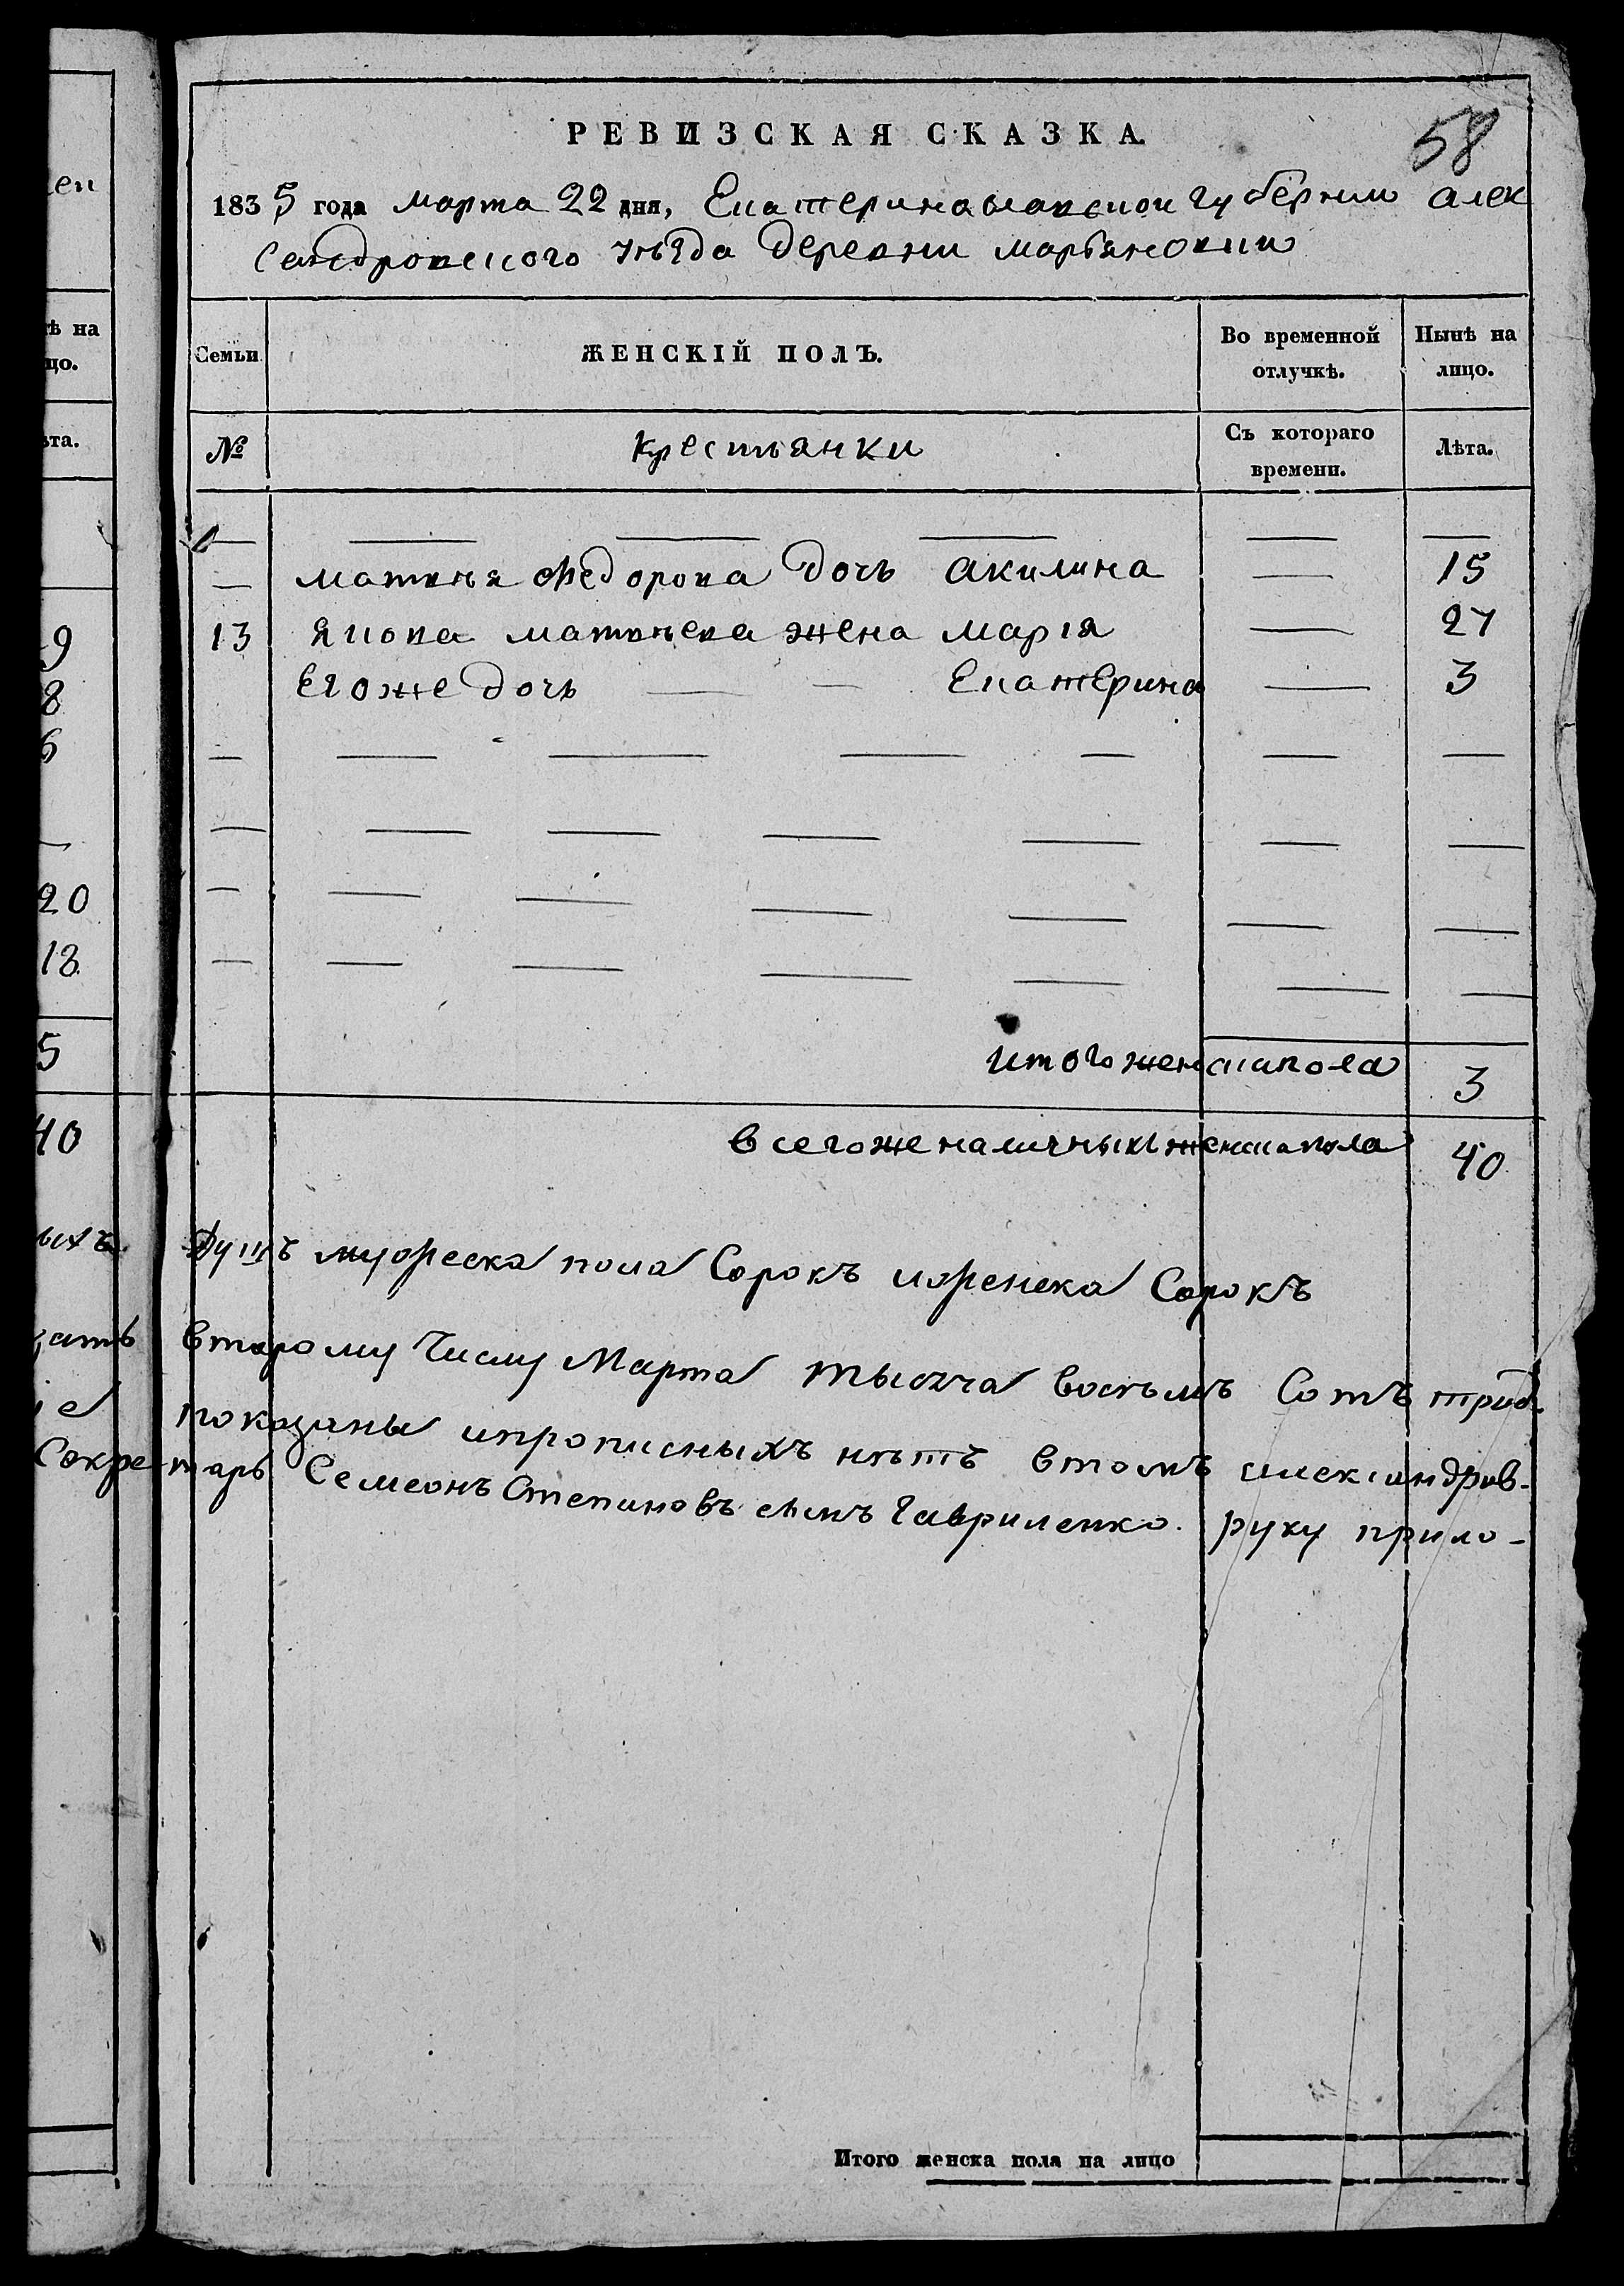 РЕВИЗСКАЯ СКАЗКА.
58
1835 года марта 22 дня, Екатеринославской губернии Алек
сандровского уѣзда деревни марьяновки
Семьи
ЖЕНСКІЙ ПОЛЪ.
Во временной отлучкѣ.
Нынѣ на лицо.
№
крестьянки
Съ котораго времени.
Лѣта.
матвѣя Федорова дочь акилина 15
13 якова матвѣева жена марія 27
Егоже дочь Екатерина 3
итого женска пола 3
всегоже наличныхъ женска пола 40
Душъ мужеска пола Сорокъ иженска Сорокъ
второму Числу Марта тысяча восемъ Сотъ трид-
показаны ипрописныхъ нѣтъ втомъ александров-
Секретарь Семеонъ Степановъ сынъ Гавриленко. руку прило-
Итого женска пола на лицо
ен
тѣ на
цо.
ѣта.
9
8
6
20
18
5
40
ыхъ
цать
іе